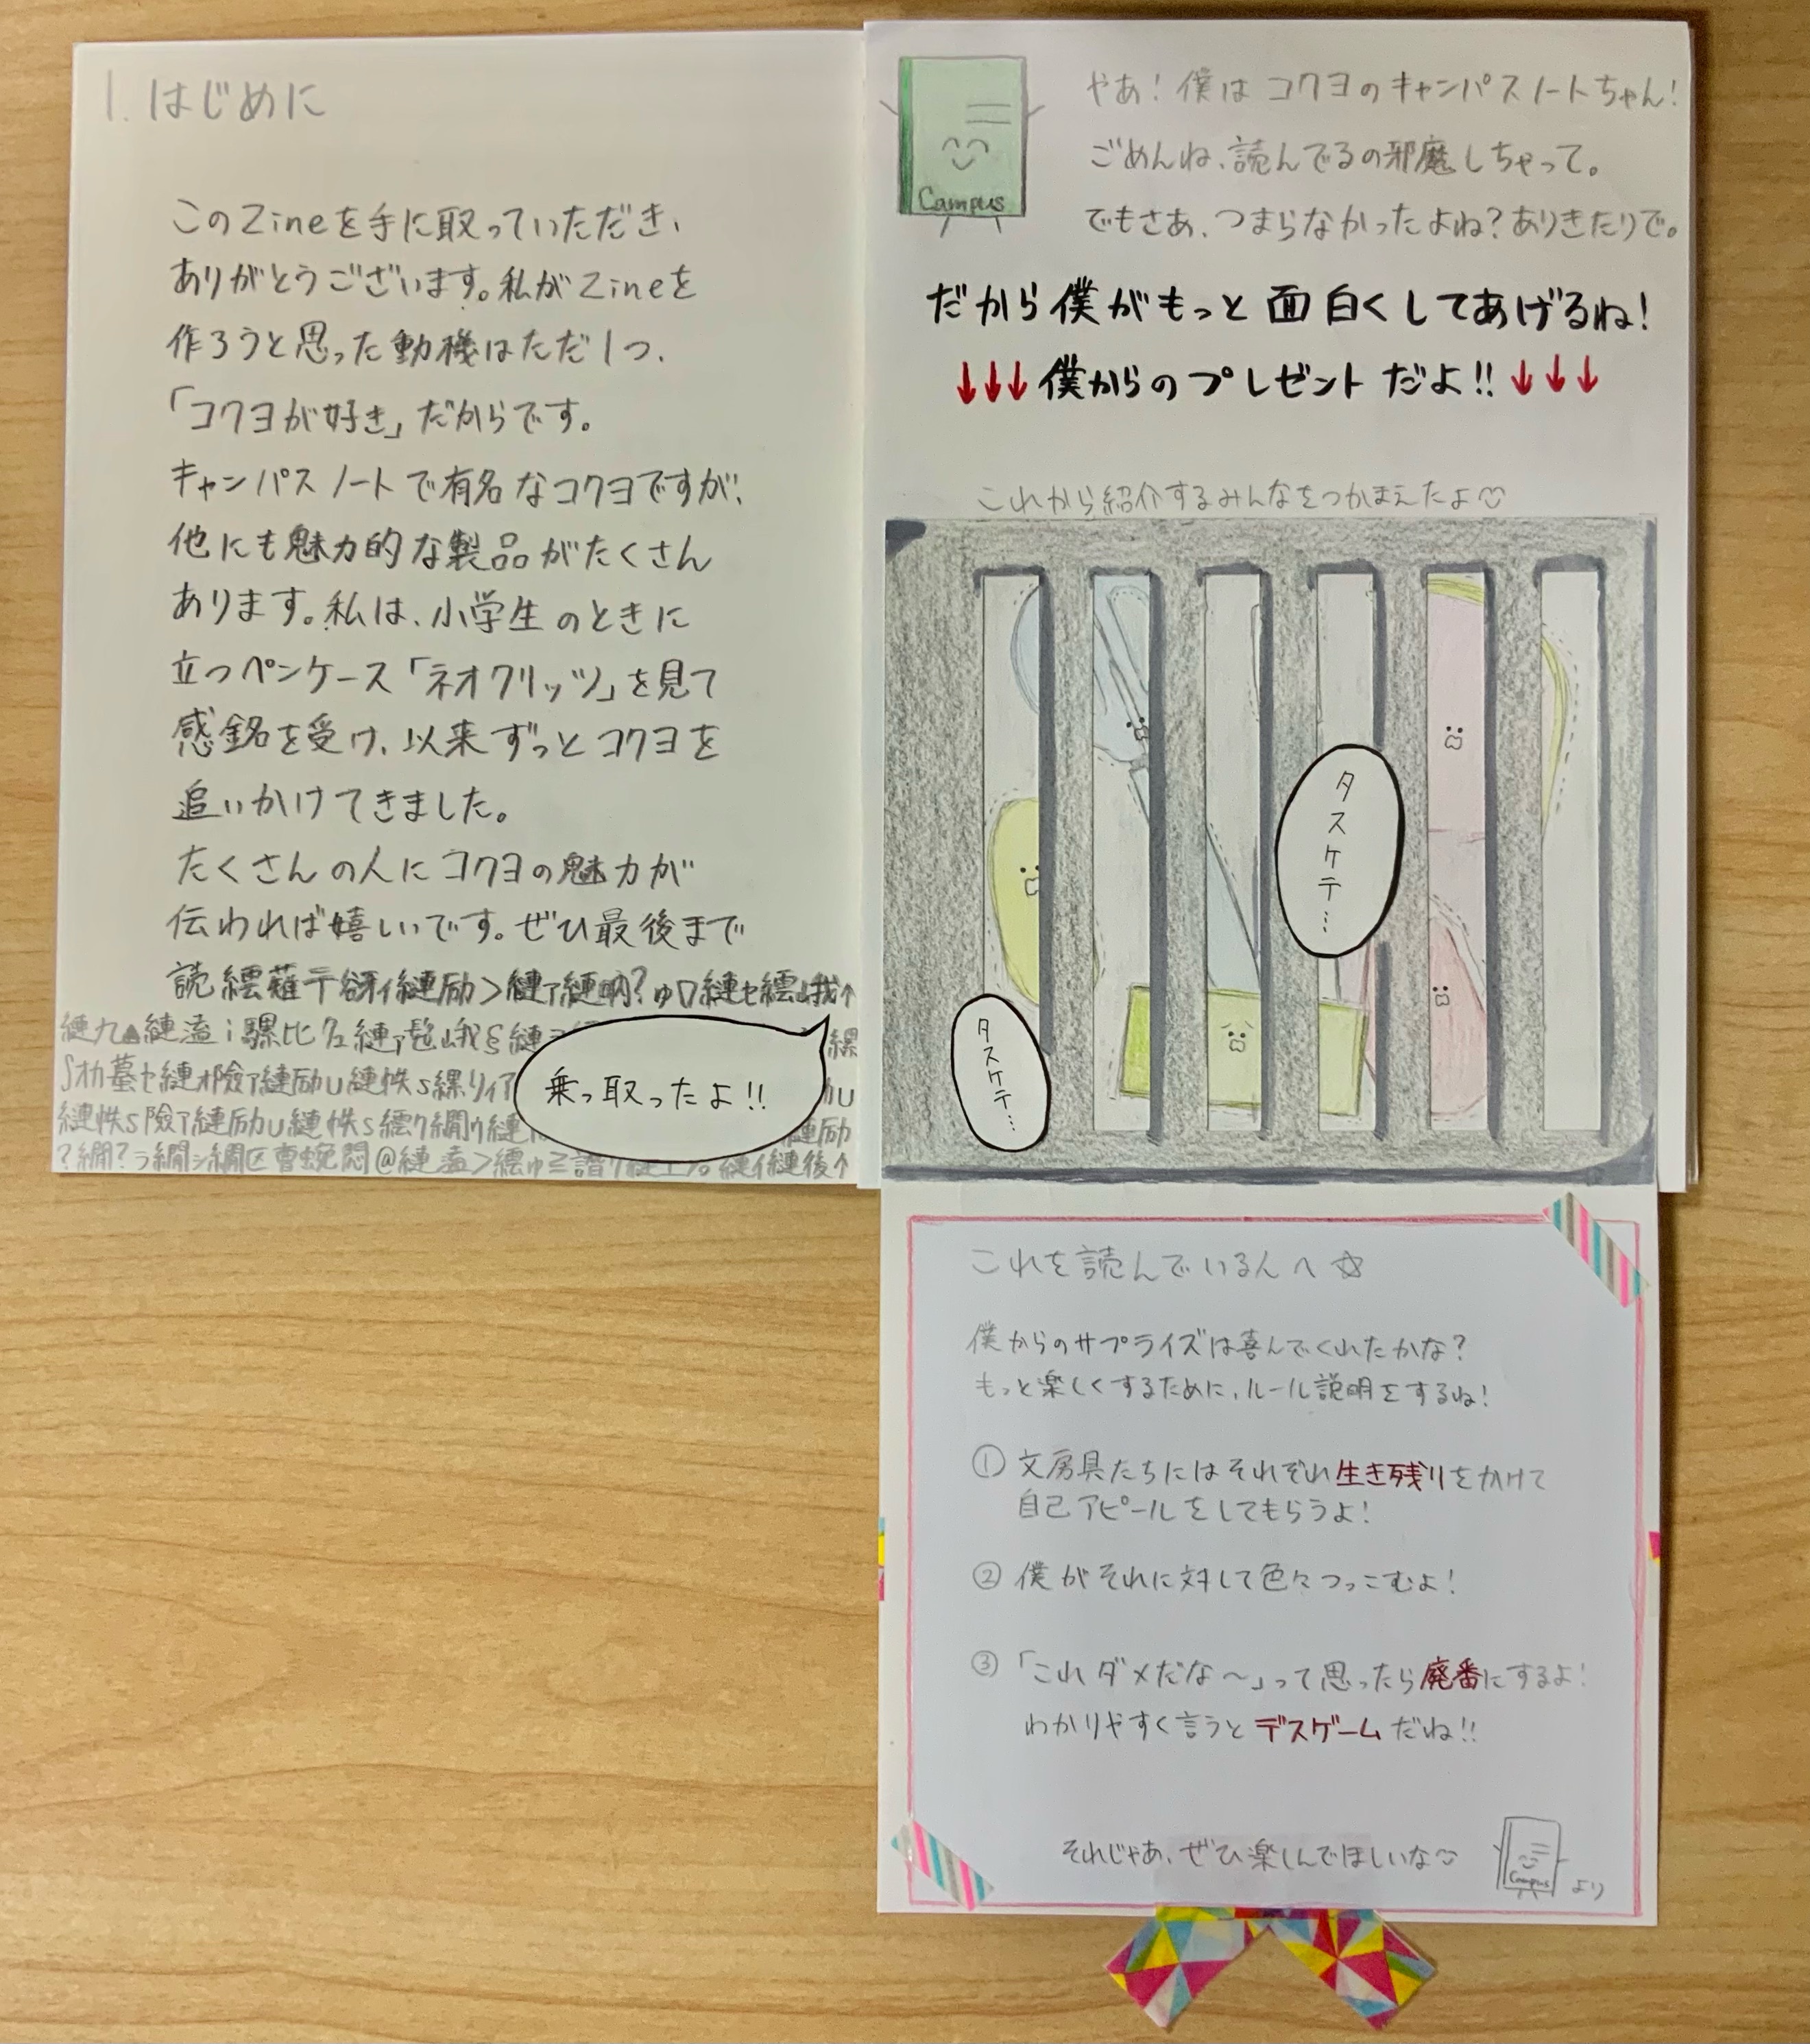 1. はじめに
このZineを手に取っていただき、
ありがとうございます。私がZineを
作ろうと思った動機はただ1つ、
「コクヨが好き」だからです。
キャンパスノートで有名なコクヨですが、
他にも魅力的な製品がたくさん
あります。私は、小学生のときに
立つペンケース「ネオクリッツ」を見て
感銘を受け、以来ずっとコクヨを
追いかけてきました。
たくさんの人にコクヨの魅力が
伝われば嬉しいです。ぜひ最後まで
読
乗っ取ったよ!!
Campus
やあ!僕はコクヨのキャンパスノートちゃん!
ごめんね、読んでるの邪魔しちゃって。
でもさあ、つまらなかったよね?ありきたりで。
だから僕がもっと面白くしてあげるね!
↓↓↓僕からのプレゼントだよ!!↓↓↓
これから紹介するみんなをつかまえたよ
タスケテ…
タスケテ…
これを読んでいる人へ☆
僕からのサプライズは喜んでくれたかな?
もっと楽しくするために、ルール説明をするね!
① 文房具たちにはそれぞれ生き残りをかけて
自己アピールをしてもらうよ!
② 僕がそれに対して色々つっこむよ!
③ 「これダメだな〜」って思ったら廃番にするよ!
わかりやすく言うとデスゲームだね!!
それじゃあ、ぜひ楽しんでほしいな
Campus
より